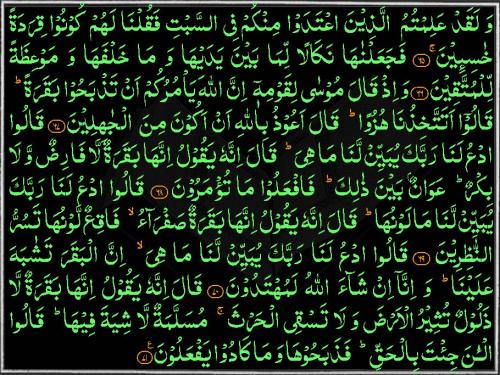 وَ لَقَدْ عَلِمْتُمُ الَّذِيْنَ اعْتَدَوْا مِنْكُمْ فِى السَّبْتِ فَقُلْنَا لَهُمْ كُوْنُوْا قِرَدَةً
خٰسِـِٕيْنَ ۚ ﴿۶۵﴾ فَجَعَلْنٰهَا نَكَالًا لِّمَا بَيْنَ يَدَيْهَا وَ مَا خَلْفَهَا وَ مَوْعِظَةً
لِّلْمُتَّقِيْنَ ﴿۶۶﴾ وَ اِذْ قَالَ مُوْسٰى لِقَوْمِهٖۤ اِنَّ اللّٰهَ يَاْمُرُكُمْ اَنْ تَذْبَحُوْا بَقَرَةً ؕ
قَالُوْۤا اَتَتَّخِذُنَا هُزُوًا ؕ قَالَ اَعُوْذُ بِاللّٰهِ اَنْ اَكُوْنَ مِنَ الْجٰهِلِيْنَ ﴿۶۷﴾ قَالُوا
ادْعُ لَنَا رَبَّكَ يُبَيِّنْ لَّنَا مَا هِىَ ؕ قَالَ اِنَّهٗ يَقُوْلُ اِنَّهَا بَقَرَةٌ لَّا فَارِضٌ وَّ لَا
بِكْرٌ ؕ عَوَانٌۢ بَيْنَ ذٰلِكَ ؕ فَافْعَلُوْا مَا تُؤْمَرُوْنَ ﴿۶۸﴾ قَالُوا ادْعُ لَنَا رَبَّكَ
يُبَيِّنْ لَّنَا مَا لَوْنُهَا ؕ قَالَ اِنَّهٗ يَقُوْلُ اِنَّهَا بَقَرَةٌ صَفْرَآءُ ۙ فَاقِعٌ لَّوْنُهَا تَسُرُّ
النّٰظِرِيْنَ ﴿۶۹﴾ قَالُوا ادْعُ لَنَا رَبَّكَ يُبَيِّنْ لَّنَا مَا هِىَ ۙ اِنَّ الْبَقَرَ تَشٰبَهَ
عَلَيْنَا ؕ وَ اِنَّاۤ اِنْ شَآءَ اللّٰهُ لَمُهْتَدُوْنَ ﴿۷۰﴾ قَالَ اِنَّهٗ يَقُوْلُ اِنَّهَا بَقَرَةٌ لَّا
ذَلُوْلٌ تُثِيْرُ الْاَرْضَ وَ لَا تَسْقِى الْحَرْثَ ۚ مُسَلَّمَةٌ لَّا شِيَةَ فِيْهَا ؕ قَالُوا
الْـٰٔنَ جِئْتَ بِالْحَقِّ ؕ فَذَبَحُوْهَا وَ مَا كَادُوْا يَفْعَلُوْنَ ﴿۷۱﴾ ع